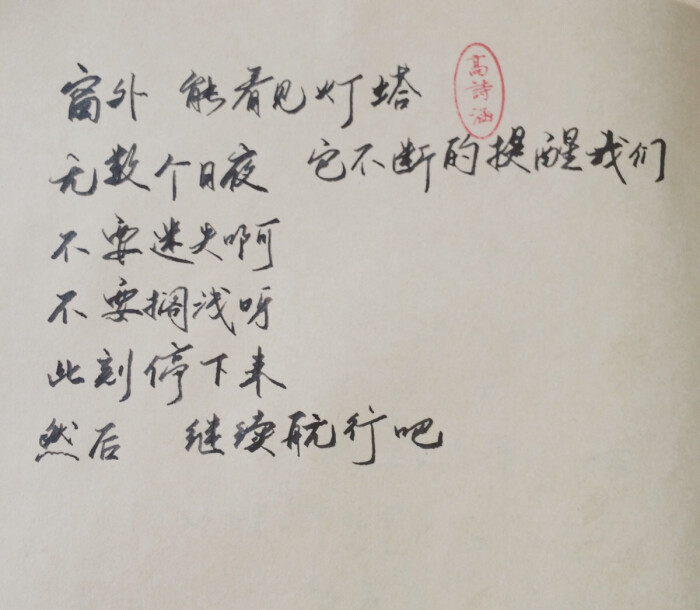 窗外 能看见灯塔
高詩涵
无数个日夜 它不断的提醒我们
不要迷失啊
不要搁浅呀
此刻停下来
然后 继续航行吧